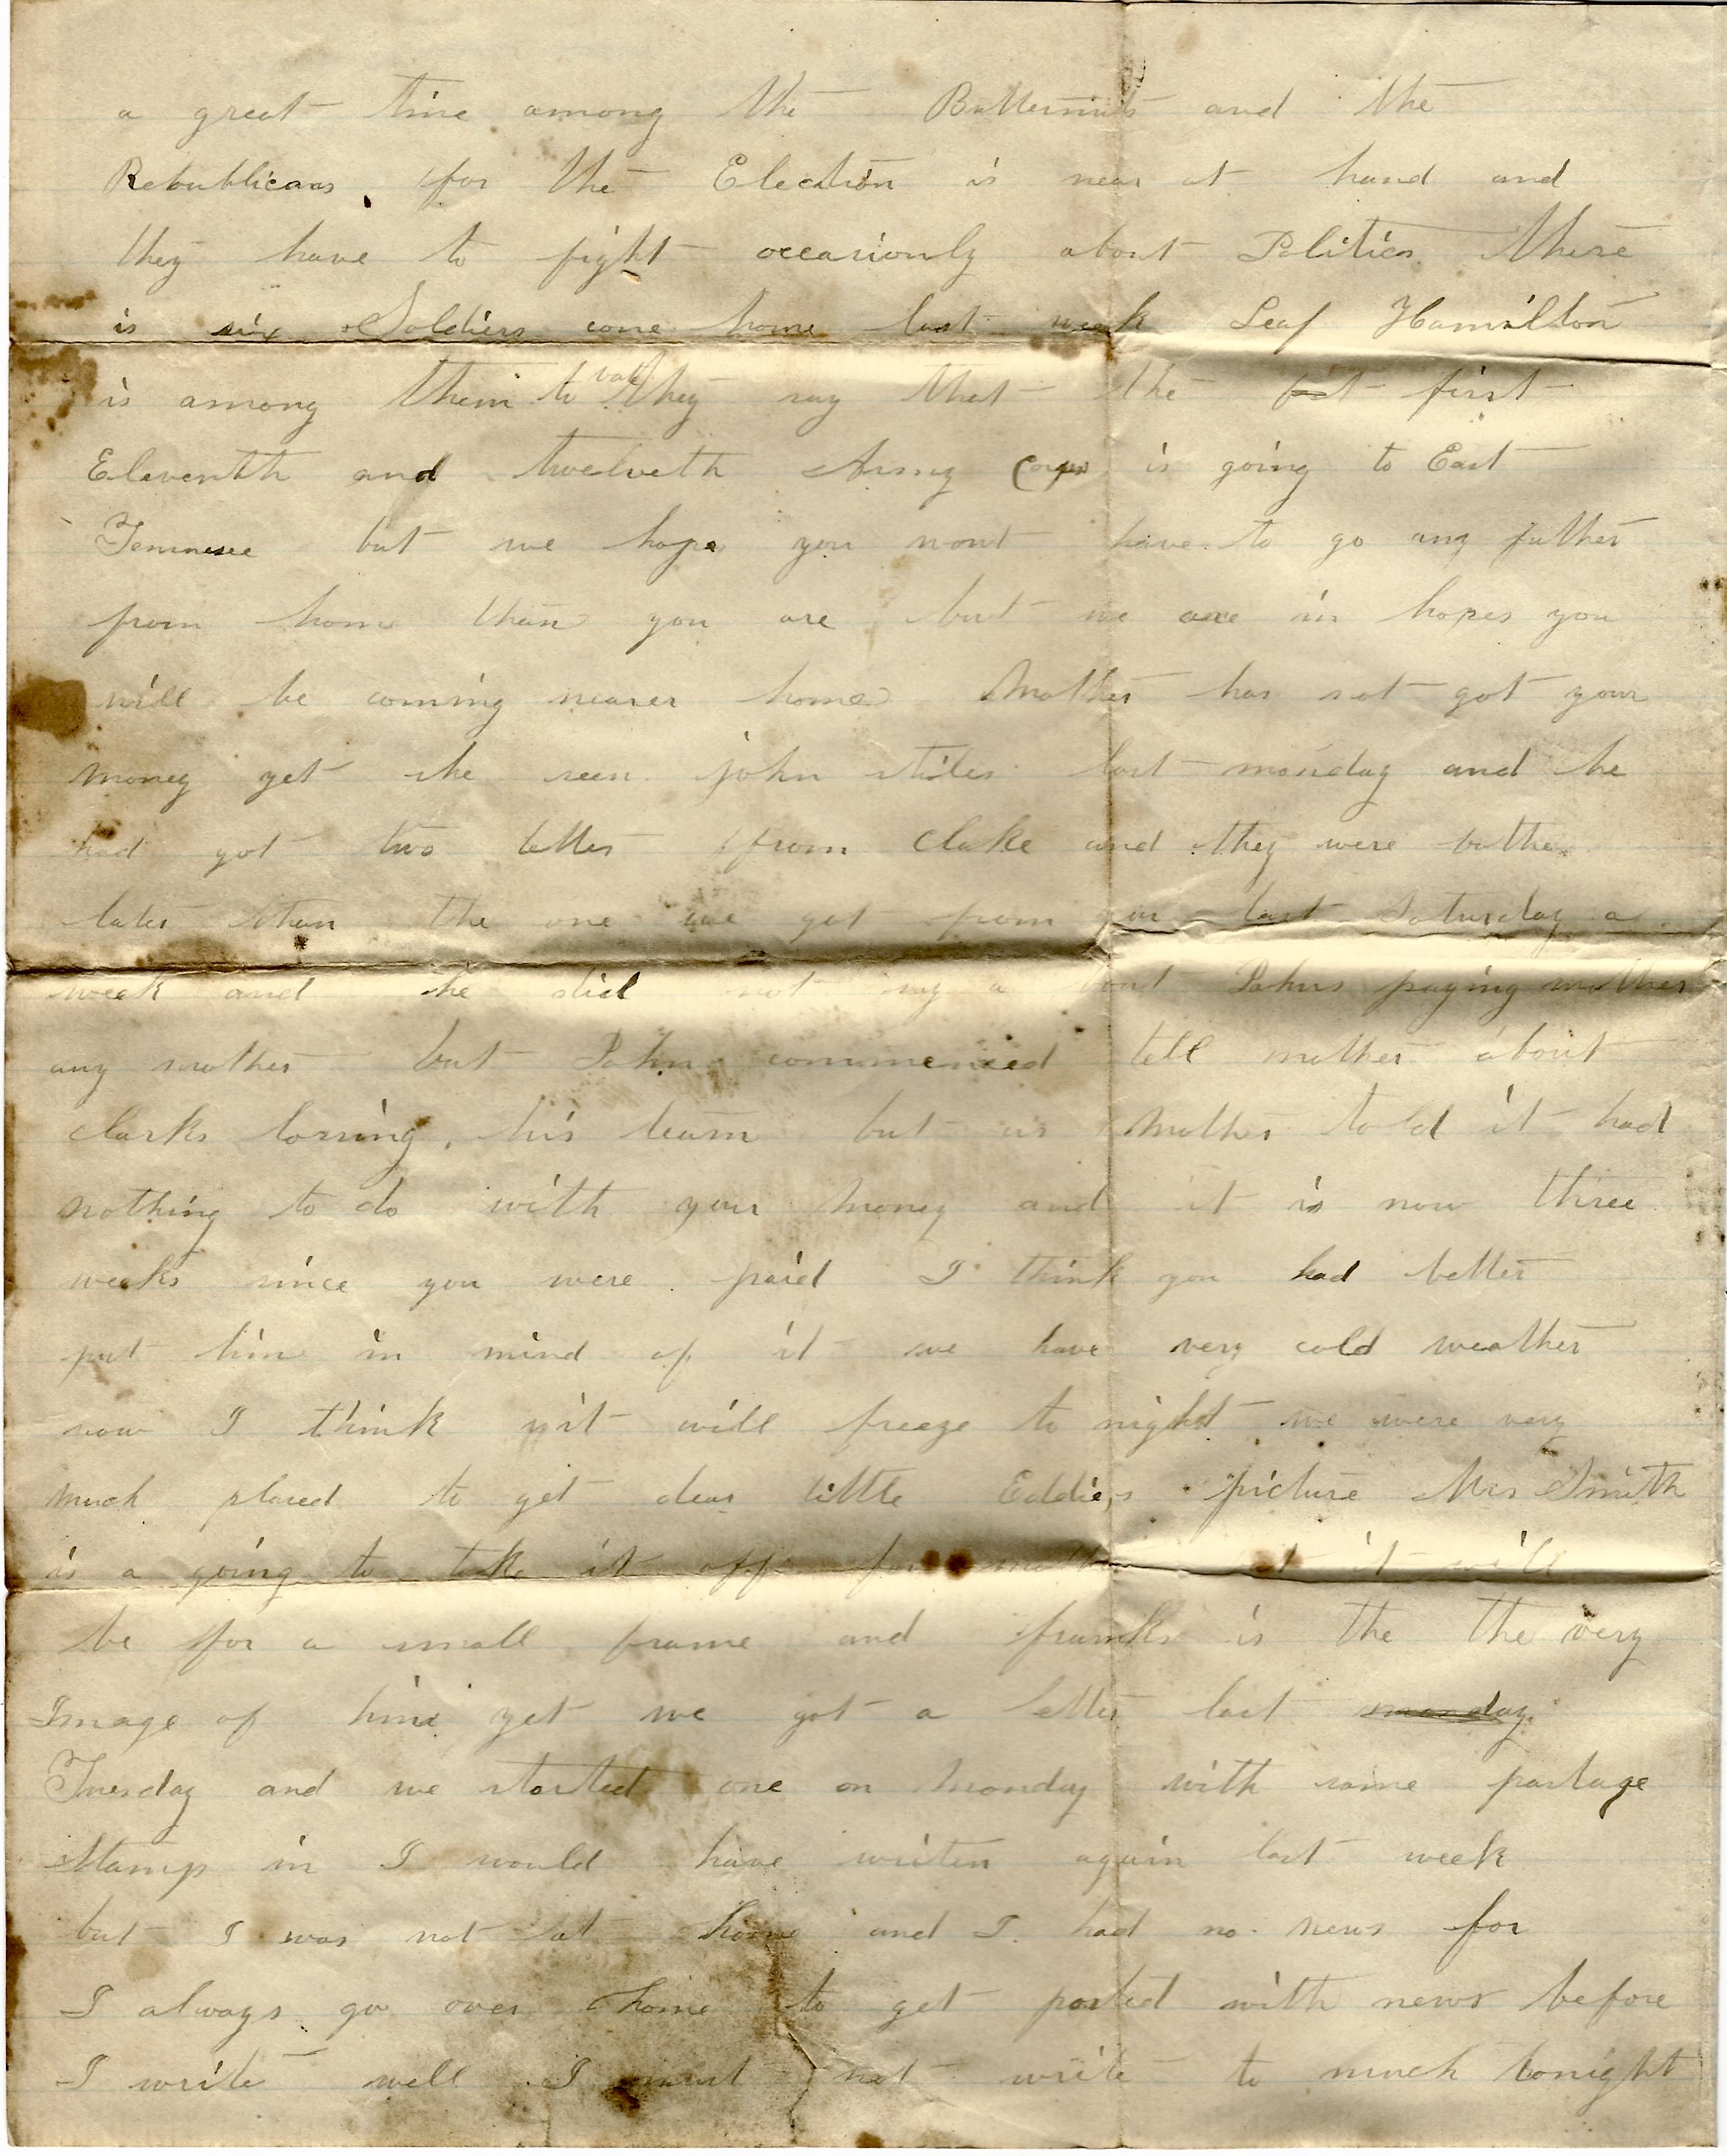 a great time among the Butternuts and the
Republicans for the Election is near at hand and
they have to fight occasionly about Politics there
is six Soldiers come home last week Leaf Hamilton
is among them to vote they say that the first
Eleventh and twelveth Army Corps is going to East
Tennesee but we hope you wont have to go any futher
from home than you are but we are in hopes you
will be coming nearer home Mother has not got your
money yet she seen john stiles last monday and he
had got two letters from Clake and they were bothe
later than the one we got from you last Saturday a
week and he did not say a bout Johns paying mother
any nother but John commenced tell mother about
clarks loosing his team but as Mother told it had
nothing to do with your money and it is now three
weeks since you were paid I think you had better
put him in mind of it we have very cold weather
now I think it will freeze to night we were very
much plased to get dear little Eddie,s picture Mrs Smith
is a going to take it off for it will
be for a small frame and franks is the the very
Image of him yet we got a letter last monday
Tuesday and we started one on Monday with some postage
Stamps in I would have writen again last week
but I was not at home and I had no news for
I always go over home to get posted with news before
I write well I must not write to much tonight